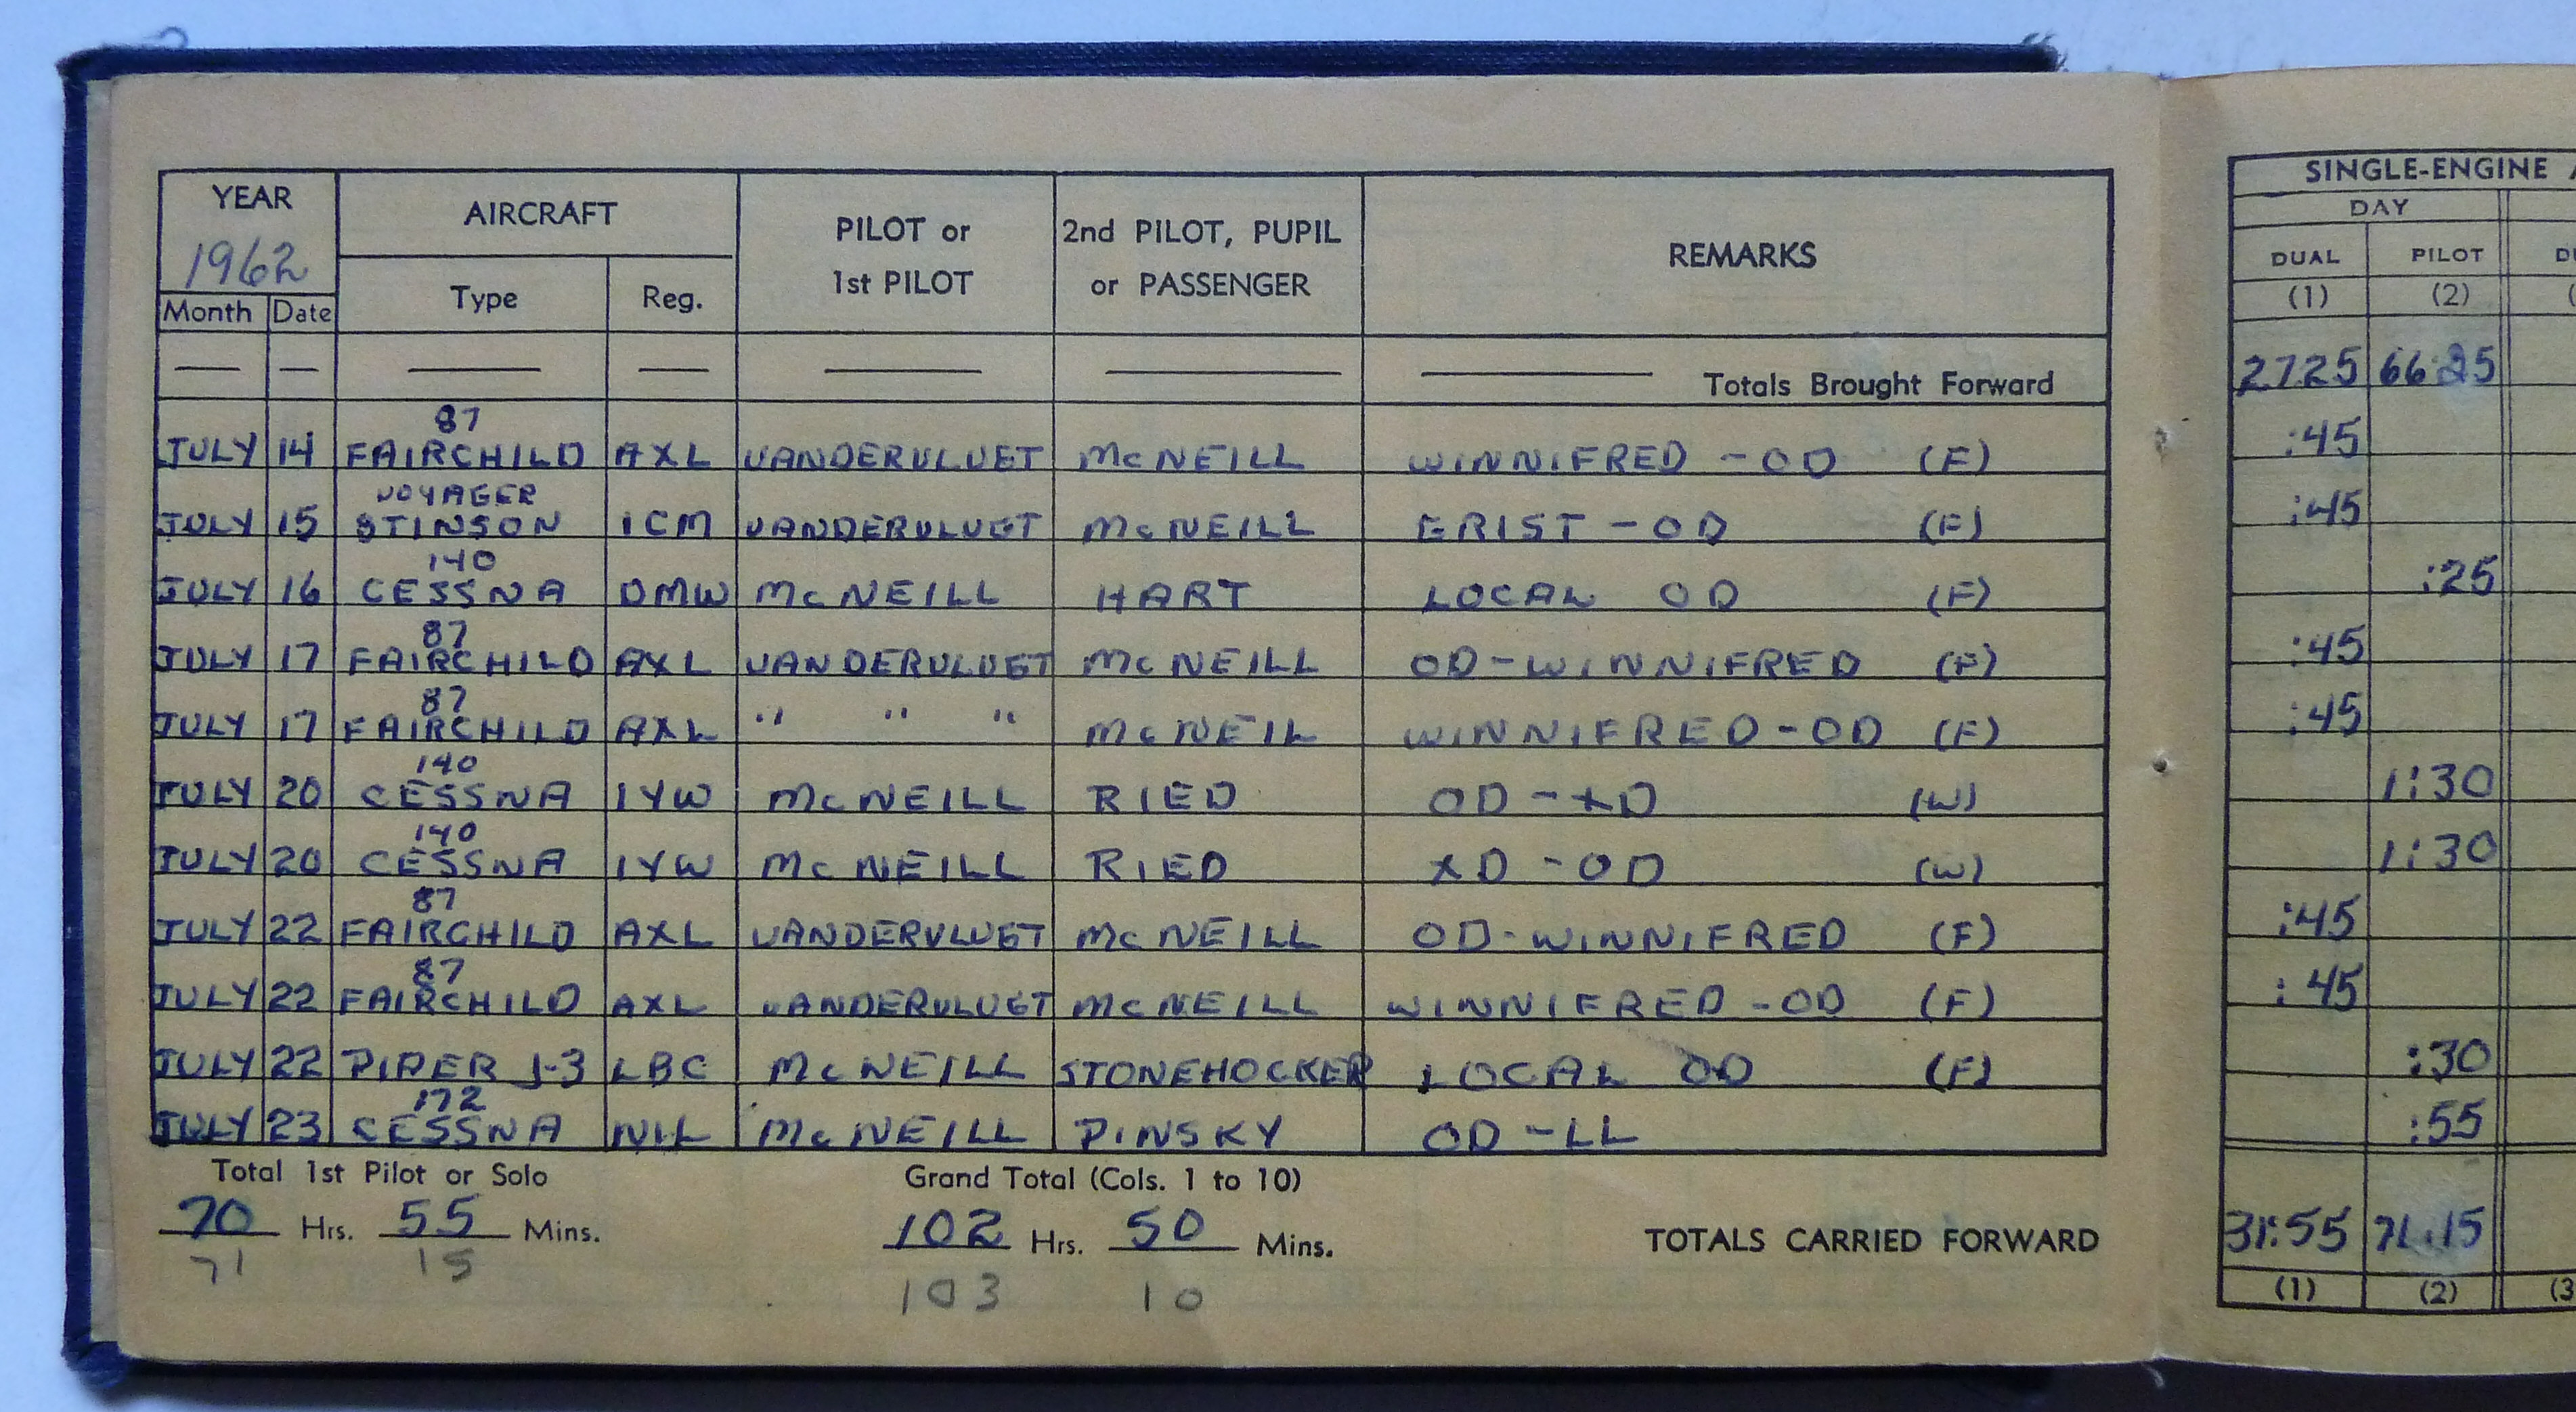 YEAR AIRCRAFT PILOT or 2nd PILOT, PUPIL REMARKS SINGLE-ENGINE
1962 1st PILOT or PASSENGER DAY
Month Date Type Reg. DUAL PILOT
(1) (2)
Totals Brought Forward 27:25 66:25
87
JULY 14 FAIRCHILD AXL VANDERVLUGT McNEILL WINNIFRED - OD (F) :45
VOYAGER
JULY 15 STINSON ICM VANDERVLUGT McNEILL - OD (F) :45
140
JULY 16 CESSNA DMW McNEILL HART LOCAL OD (F) :25
87
JULY 17 FAIRCHILD AXL VANDERVLUGT McNEILL OD - WINNIFRED (F) :45
87
JULY 17 FAIRCHILD AXL " " " McNEIL WINNIFRED - OD (F) :45
140
JULY 20 CESSNA IYW McNEILL RIED OD - XD (W) 1:30
140
JULY 20 CESSNA IYW McNEILL RIED XD - OD (W) 1:30
87
JULY 22 FAIRCHILD AXL VANDERVLUGT McNEILL OD - WINNIFRED (F) :45
87
JULY 22 FAIRCHILD AXL VANDERVLUGT McNEILL WINNIFRED - OD (F) :45
JULY 22 PIPER J-3 LBC McNEILL STONEHOCKER LOCAL OD (F) :30
172
JULY 23 CESSNA NIL McNEILL PINSKY OD - LL :55
Total 1st Pilot or Solo Grand Total (Cols. 1 to 10)
70 Hrs. 55 Mins. 102 Hrs. 50 Mins. TOTALS CARRIED FORWARD 31:55 71:15
71 15 103 10
(1) (2) (3